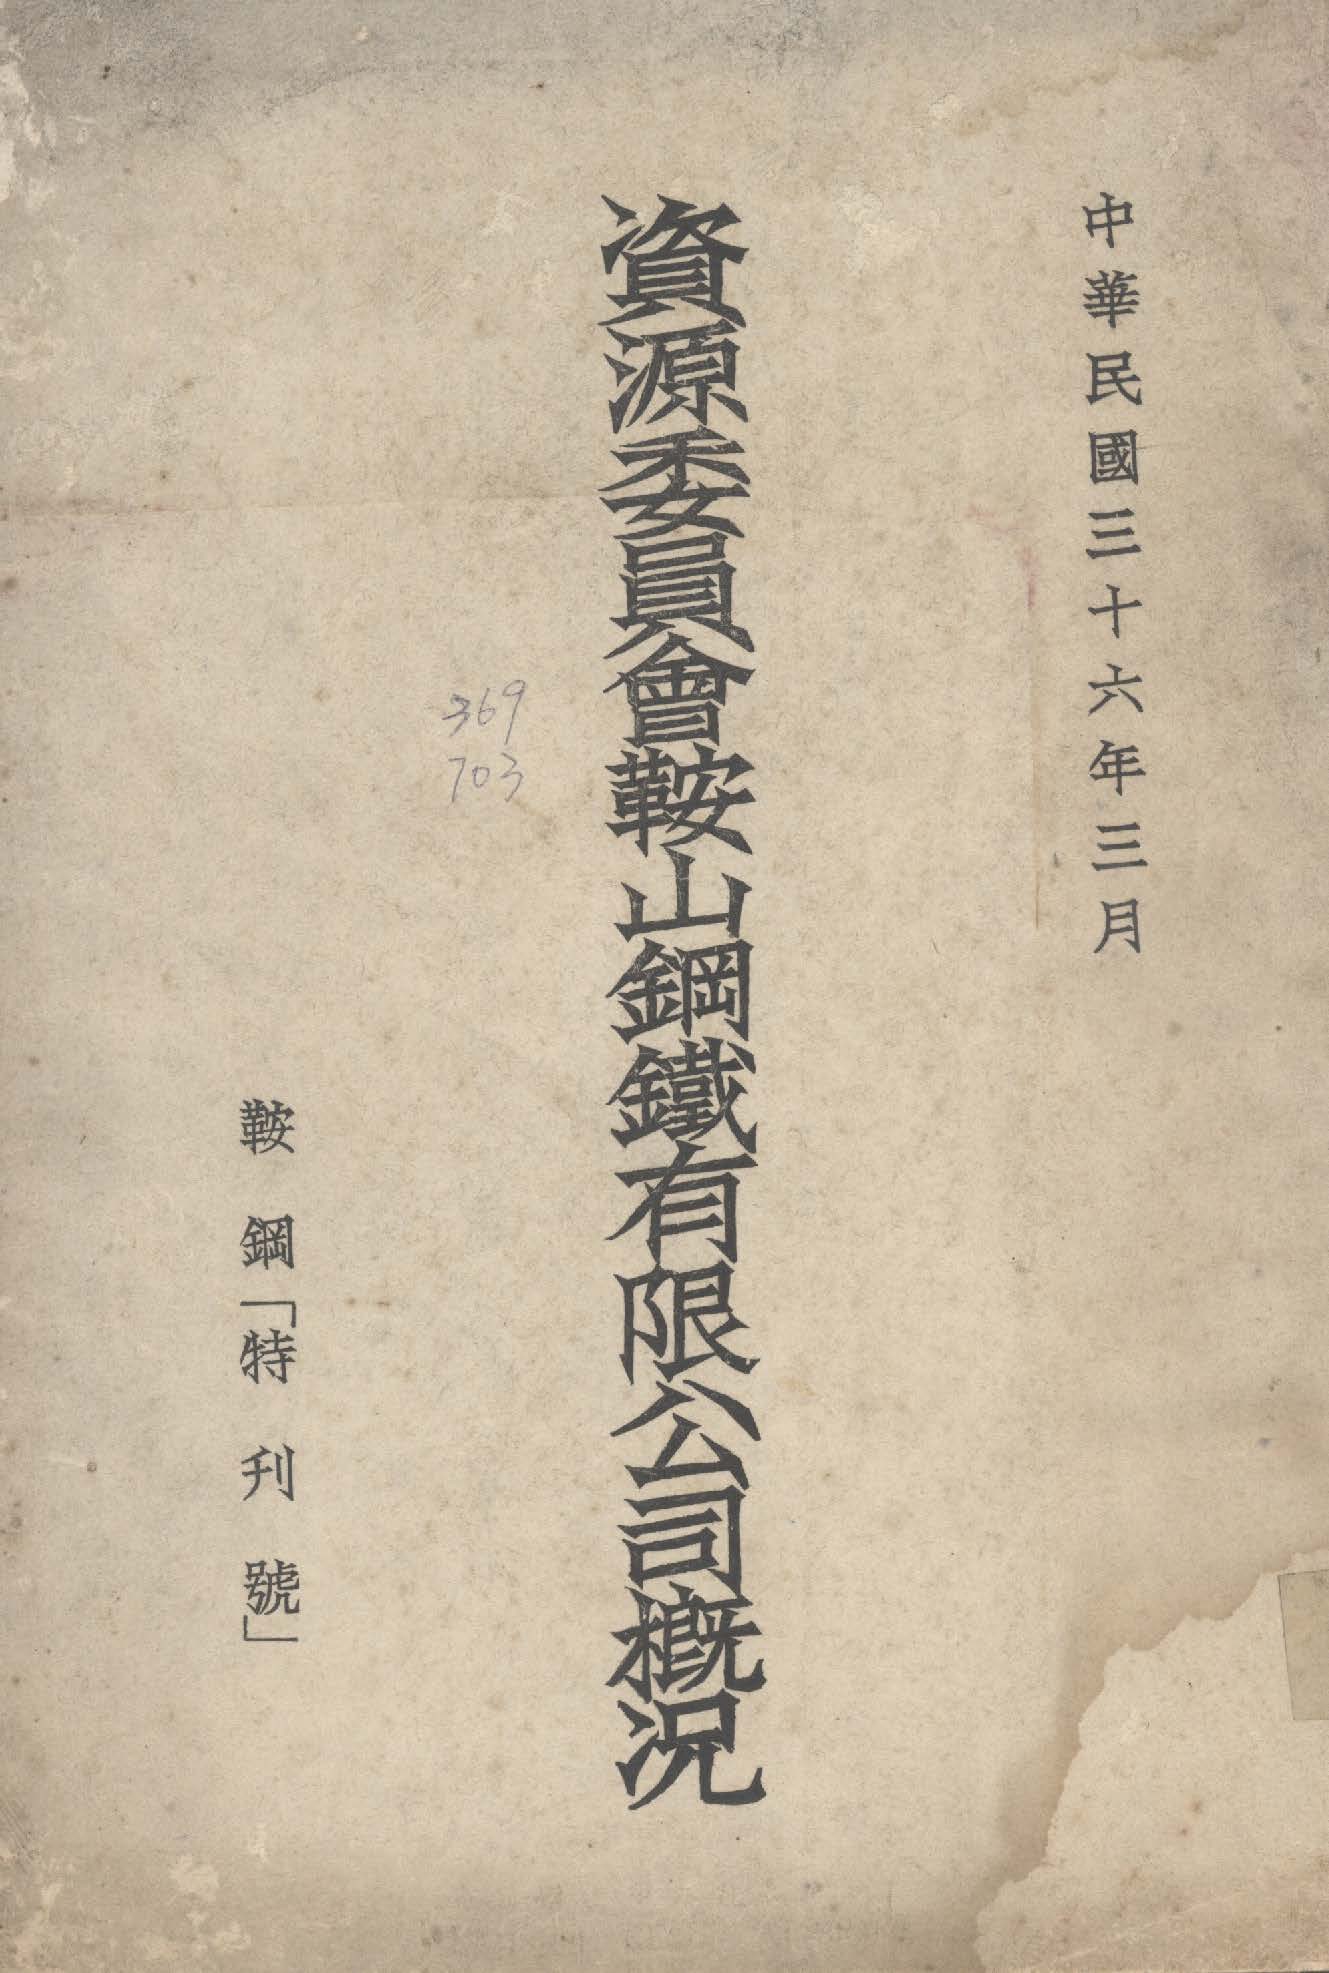 中華民國三十六年三月
資源委員會鞍山鋼鐵有限公司概況
369
703
鞍鋼「特刋號」